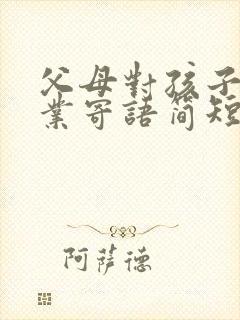 父母對孩子
業寄語简短
阿萨德